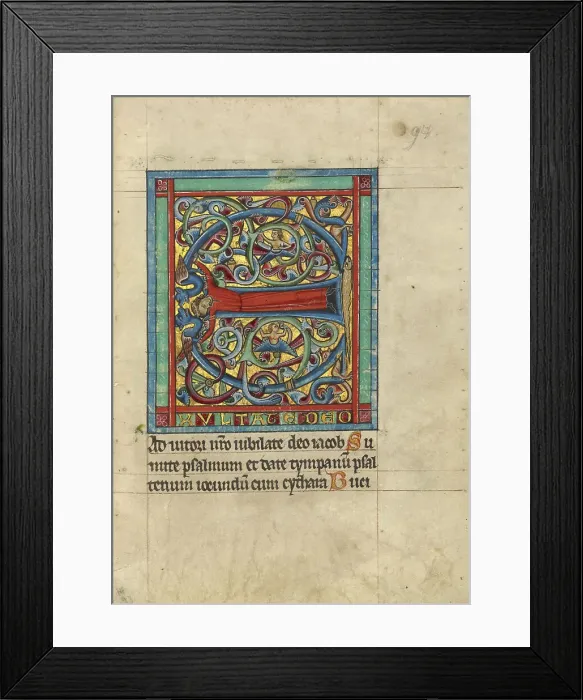 E
XVLTATE DEO
Adiutori nr̄o iubilate deo iacob Su
mite psalmum et date tympanū psal
terium iocundū cum cythara Buci